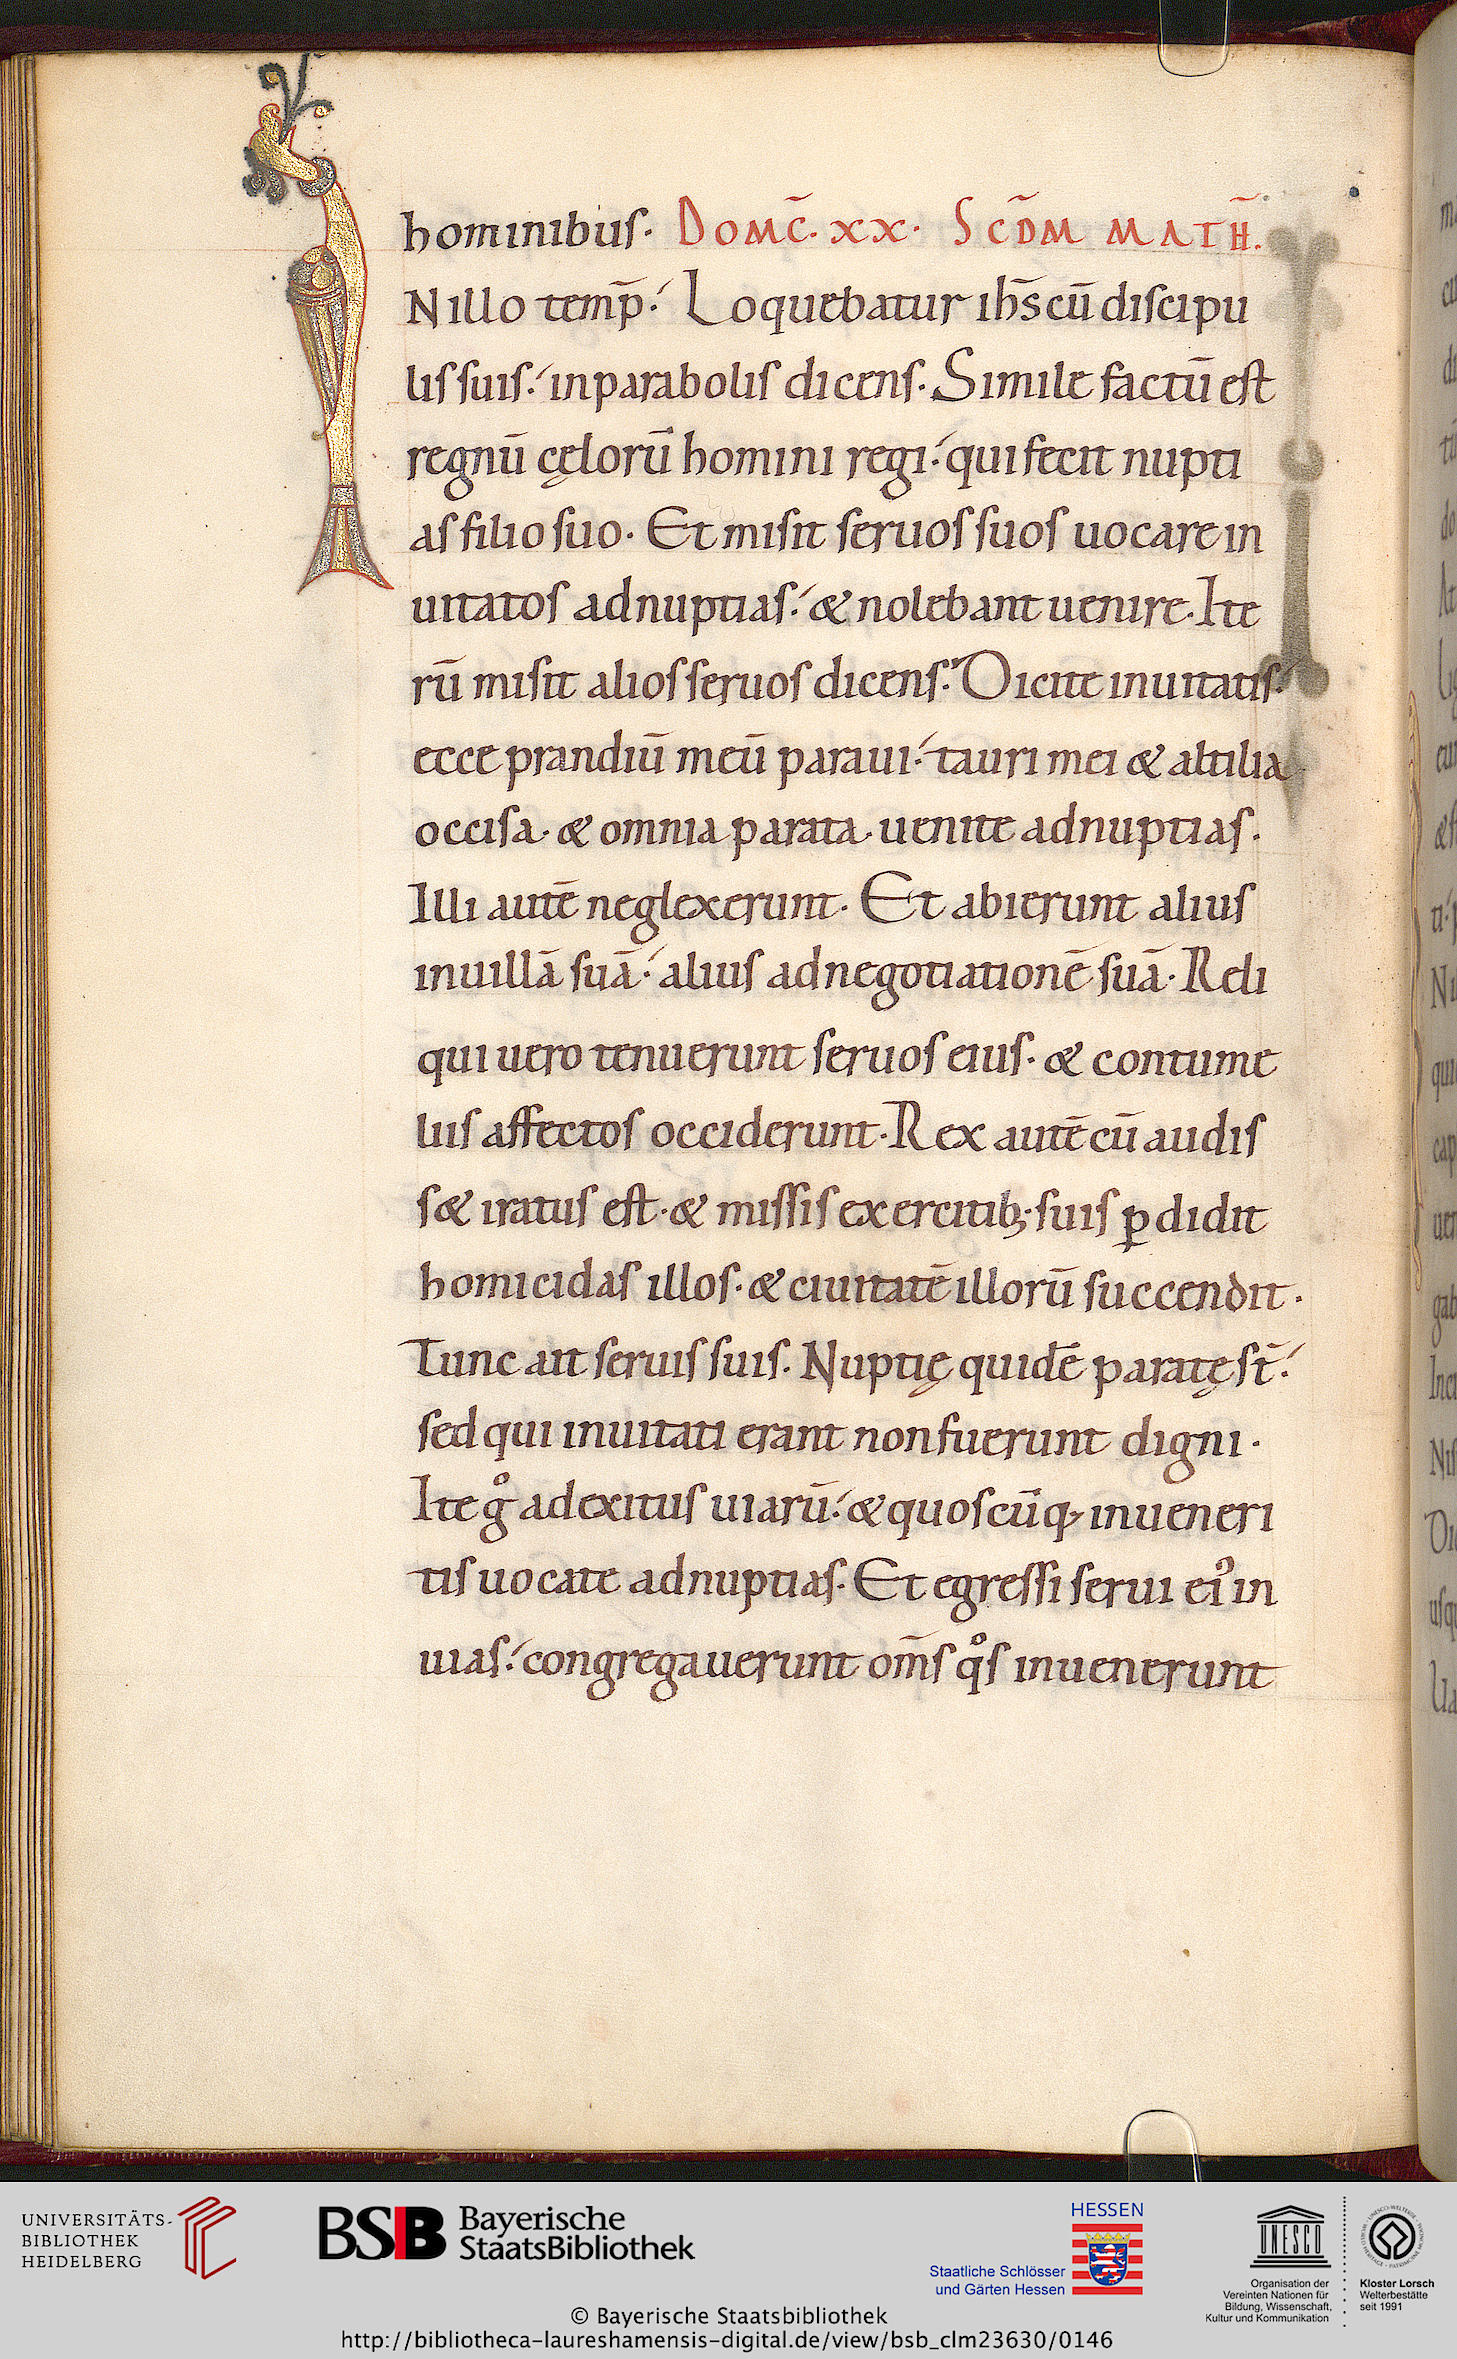 hominibus. DOMC̄. XX. SCD̄M MATH̄.
I
Nillo temp̄. Loquebatur ih̄s cū discipu
lis suis. in parabolis dicens. Simile factū est
regnū cęlorū homini regi. qui fecit nupti
as filio suo. Et misit seruos suos uocare in
uitatos ad nuptias. & nolebant uenire. Ite
rū misit alios seruos dicens. Dicite inuitatis.
ecce prandiū meū paraui. tauri mei & altilia
occisa. & omnia parata. uenite ad nuptias.
Illi autē neglexerunt. Et abierunt alius
in uillā suā. alius ad negotiationē suā. Reli
qui uero tenuerunt seruos eius. & contume
liis affectos occiderunt. Rex autē cū audis
s& iratus est. & missis exercitib; suis ꝑdidit
homicidas illos. & ciuitatē illorū succendit.
Tunc ait seruis suis. Nuptię quidē paratę sт̄.
sed qui inuitati erant non fuerunt digni.
Ite gͦ ad exitus uiarū. & quoscūq; inueneri
tis uocate ad nuptias. Et egressi serui ei᾿ in
uias. congregauerunt om̄s qͦs inuenerunt
UNIVERSITÄTS-
BIBLIOTHEK
HEIDELBERG
BSB Bayerische
StaatsBibliothek
HESSEN
Staatliche Schlösser
und Gärten Hessen
UNESCO
Organisation der
Vereinten Nationen für
Bildung, Wissenschaft,
Kultur und Kommunikation
Kloster Lorsch
Welterbestätte
seit 1991
© Bayerische Staatsbibliothek
http://bibliotheca-laureshamensis-digital.de/view/bsb_clm23630/0146